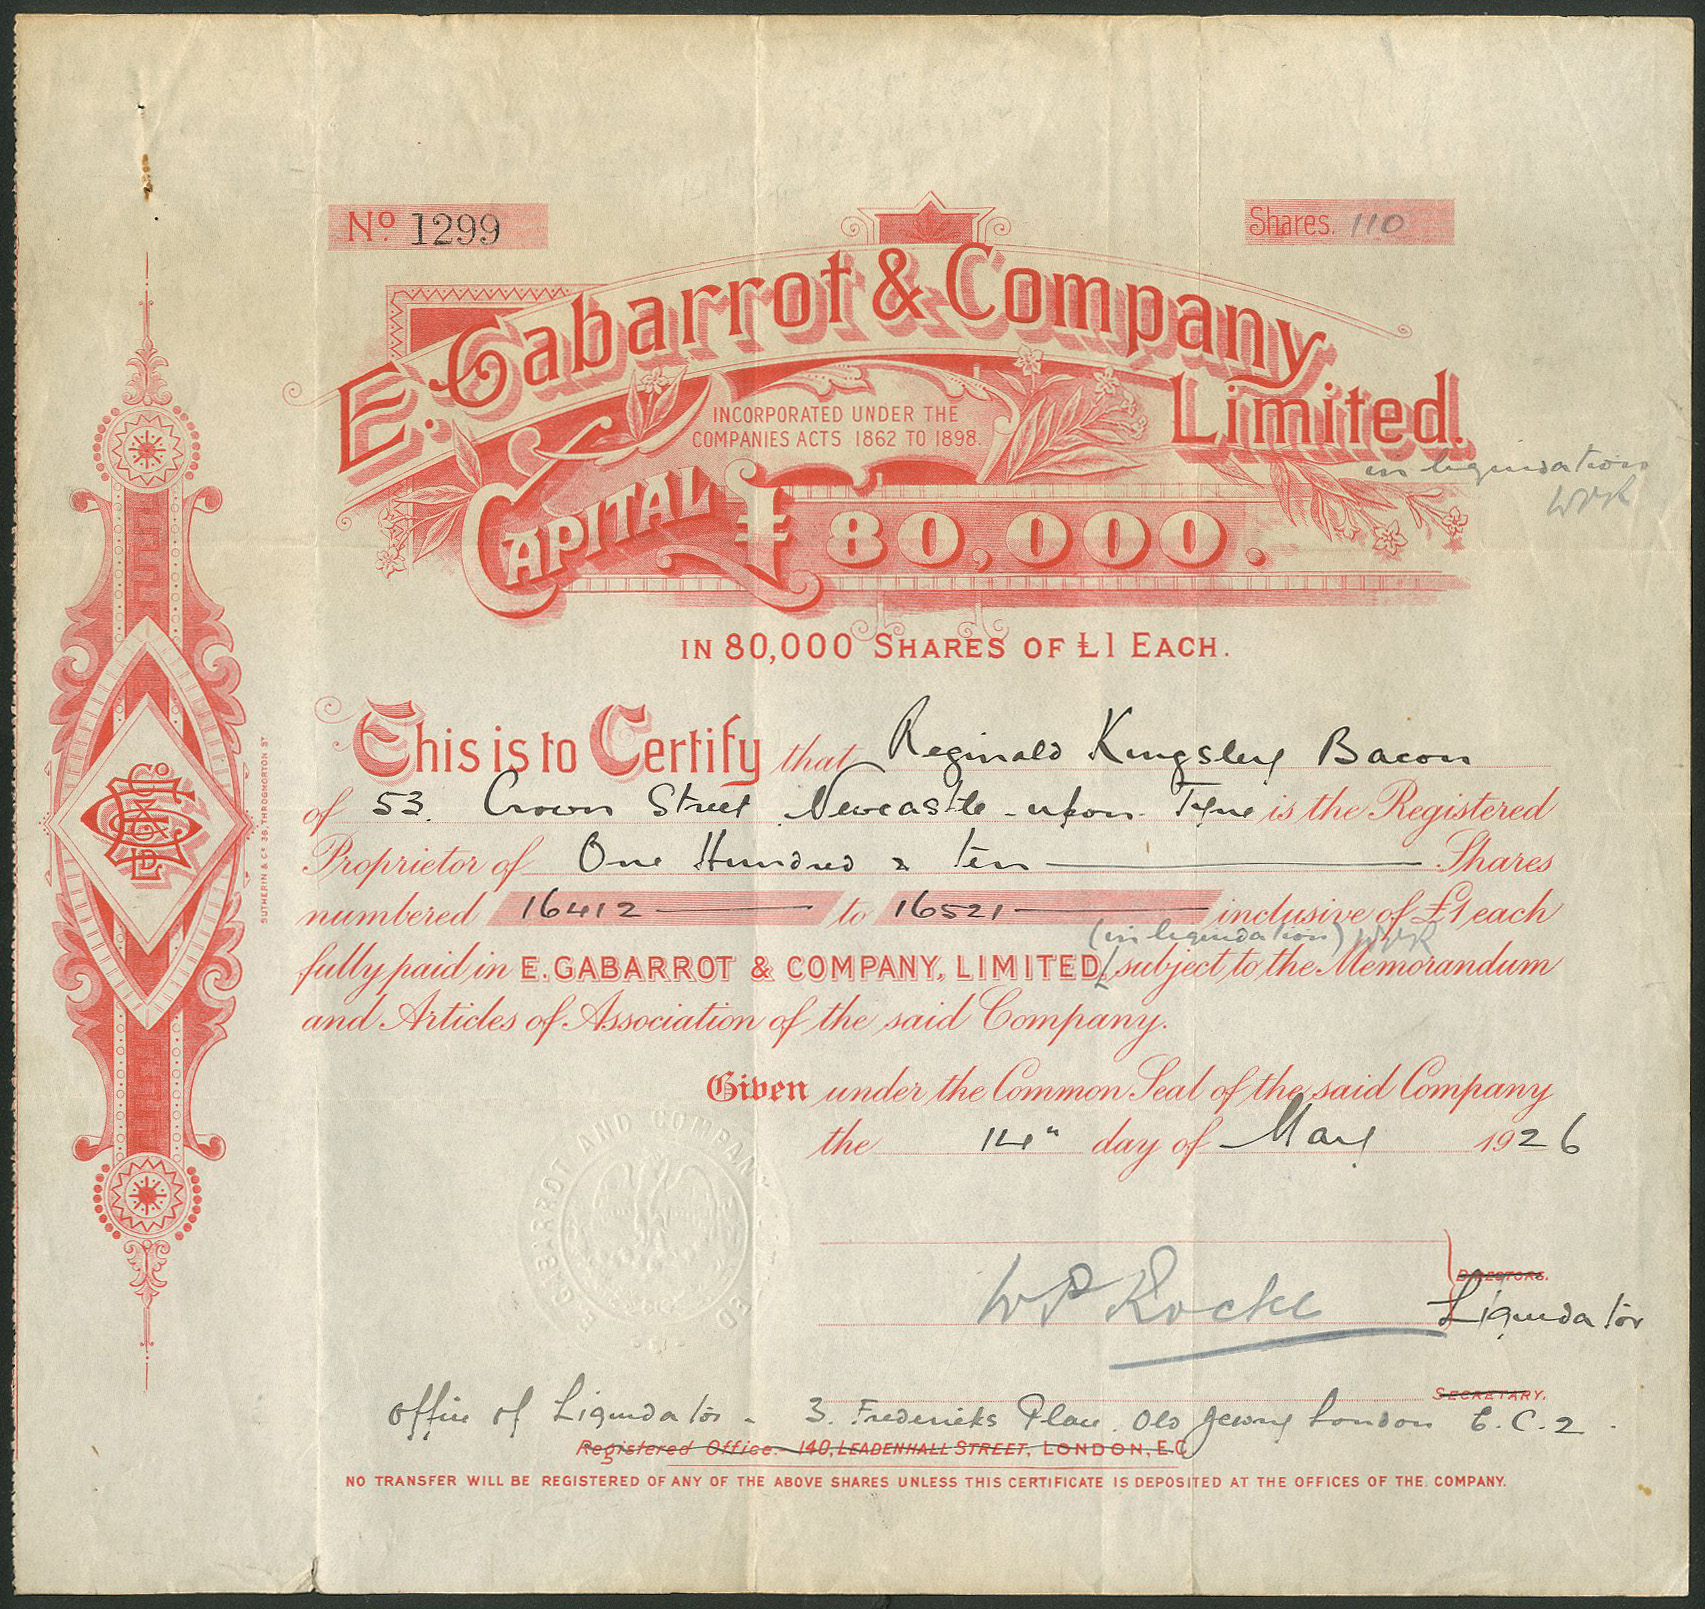 No. 1299
Shares. 110
E. Gabarrot & Company
Limited.
in liquidation
WPR
INCORPORATED UNDER THE
COMPANIES ACTS 1862 TO 1898.
CAPITAL £80,000.
IN 80,000 SHARES OF £1 EACH.
This is to Certify that Reginald Kingsley Bacon
of 53. Crown Street Newcastle-upon-Tyne is the Registered
Proprietor of One Hundred & ten Shares
numbered 16412 to 16521 inclusive of £1 each
(in liquidation) WPR
fully paid in E. GABARROT & COMPANY, LIMITED, subject to the Memorandum
and Articles of Association of the said Company.
Given under the Common Seal of the said Company
the 14th day of May 1926
E GABARROT AND COMPANY LIMITED
DIRECTORS.
WP Rocke Liquidator
SECRETARY.
Office of Liquidator - 3. Fredericks Place. Old Jewry London E.C.2.
Registered Office:- 140, LEADENHALL STREET, LONDON, E.C.
NO TRANSFER WILL BE REGISTERED OF ANY OF THE ABOVE SHARES UNLESS THIS CERTIFICATE IS DEPOSITED AT THE OFFICES OF THE COMPANY.
SUTHERIN & Co 36, THROGMORTON ST